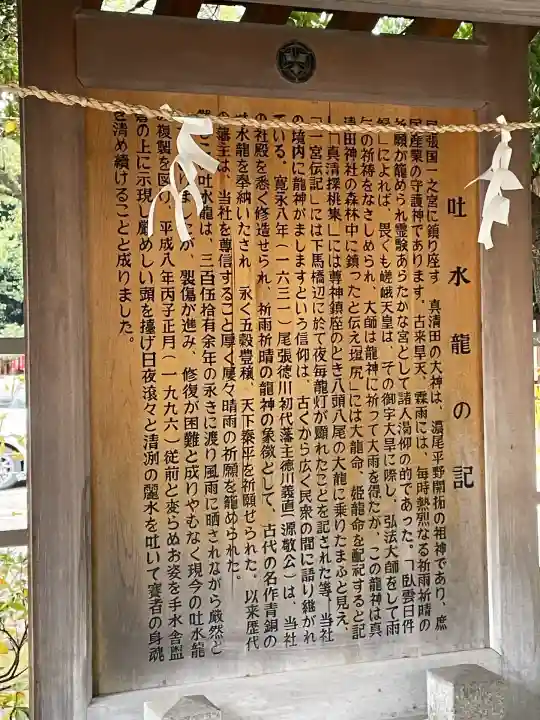 吐水龍の記
尾張国一之宮に鎮り座す 真清田の大神は、濃尾平野開拓の祖神であり、庶
民産業の守護神であります。古来旱天、霖雨には、毎時熱烈なる祈雨祈晴の
祈願が籠められ霊験あらたかな宮として諸人渇仰の的であった。「臥雲日件
録」によれば、畏くも嵯峨天皇は、その御宇大旱に際し、弘法大師をして雨
乞の祈祷をなさしめられ、大師は龍神に祈って大雨を得たが、この龍神は真
清田神社の森林中に鎮ったと伝え「塩尻」には大龍命、姫龍命を配祀すると記
し「真清探桃集」には尊神鎮座のとき八頭八尾の大龍に乗りたまふと見え、
「一宮伝記」には下馬橋辺に於て夜毎龍灯が顕れたことを記された等、当社
の境内に龍神がましますという信仰は、古くから広く民衆の間に語り継がれ
ている。寛永八年(一六三一)尾張徳川初代藩主徳川義直(源敬公)は、当社
の社殿を悉く修造せられ、祈雨祈晴の龍神の象徴として、古代の名作青銅の
吐水龍を奉納いたされ、永く五穀豊穣、天下泰平を祈願せられた。以来歴代
の藩主は、当社を尊信すること厚く屡々晴雨の祈願を籠められた。
吐水龍は、三百伍拾有余年の永きに渡り風雨に晒されながら厳然と
りましたが、製傷が進み、修復が困難と成りやむなく現今の吐水龍
の複製を図り、平成八年丙子正月(一九九六)従前と変らぬお姿を手水舎盥
岩の上に示現し厳めしい頭を擡げ日夜滾々と清冽の麗水を吐いて賽者の身魂
を清め続けることと成りました。